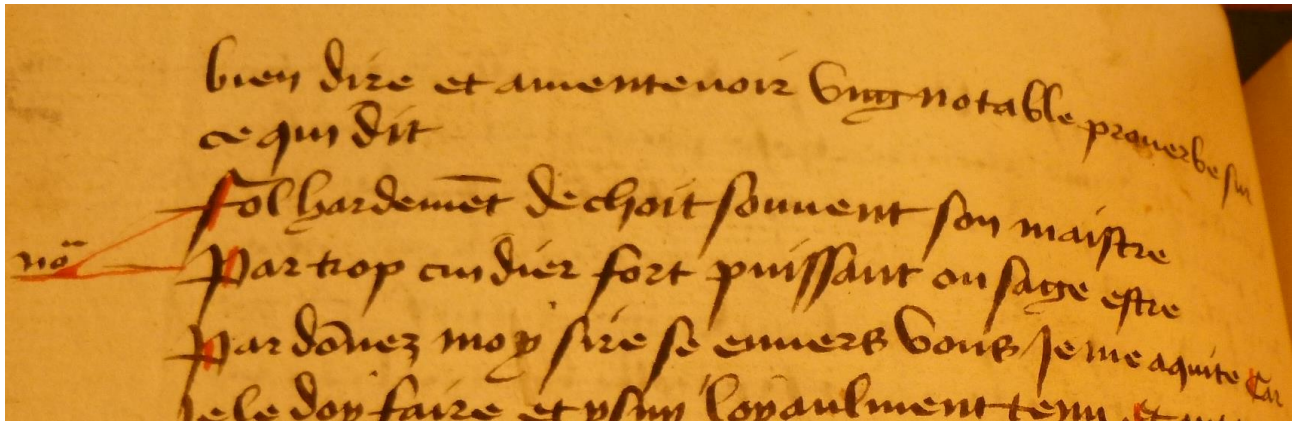 bien dire et amentenoir ung notable prouerbe sur
ce qui dit
Fol hardemēt dechoit souuent son maistre
noa
Par trop cuidier fort puissant ou sage estre
Pardōnez moy sire se enuers vous Je me aquite Car
Je le doy faire et y suy loyaulment tenu Et